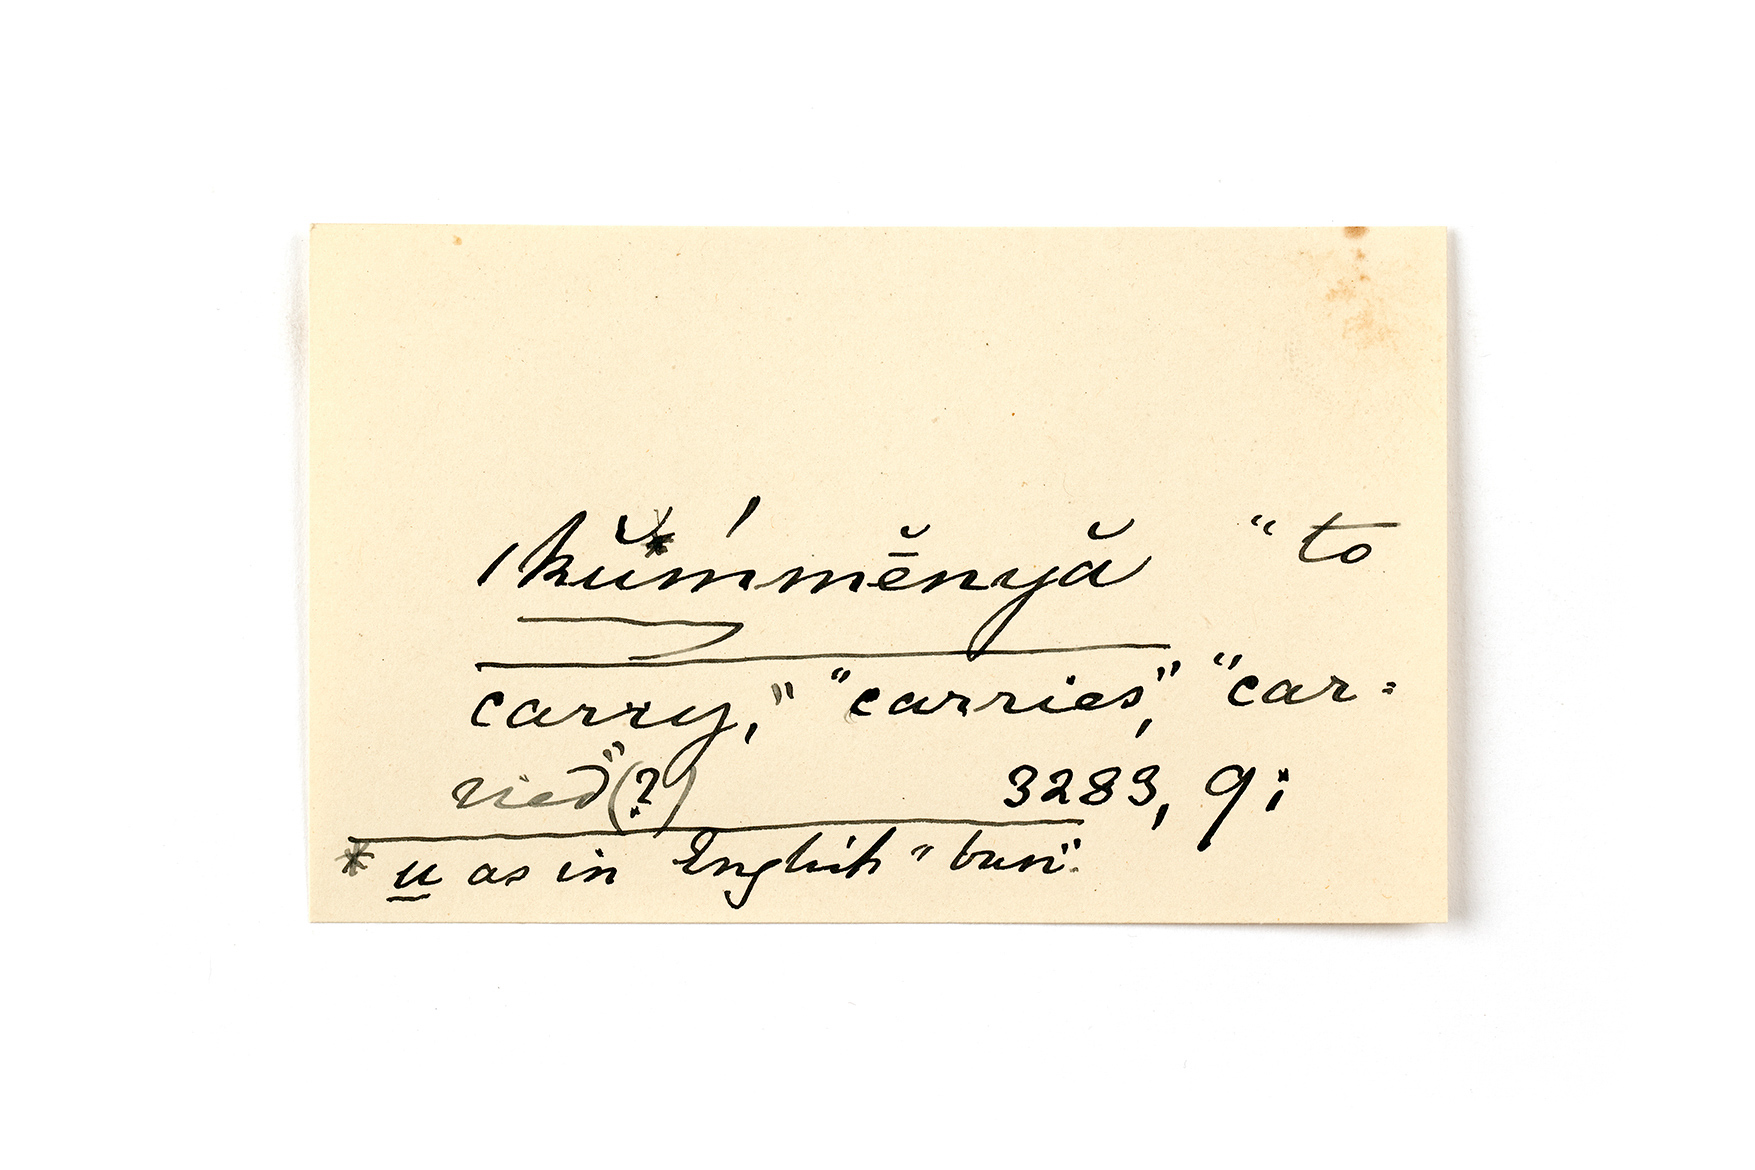 'kŭ*m´mē̆nyă "to
carry," "carries," "car=
ried"(?) 3283, 9;
* u as in English "bun".